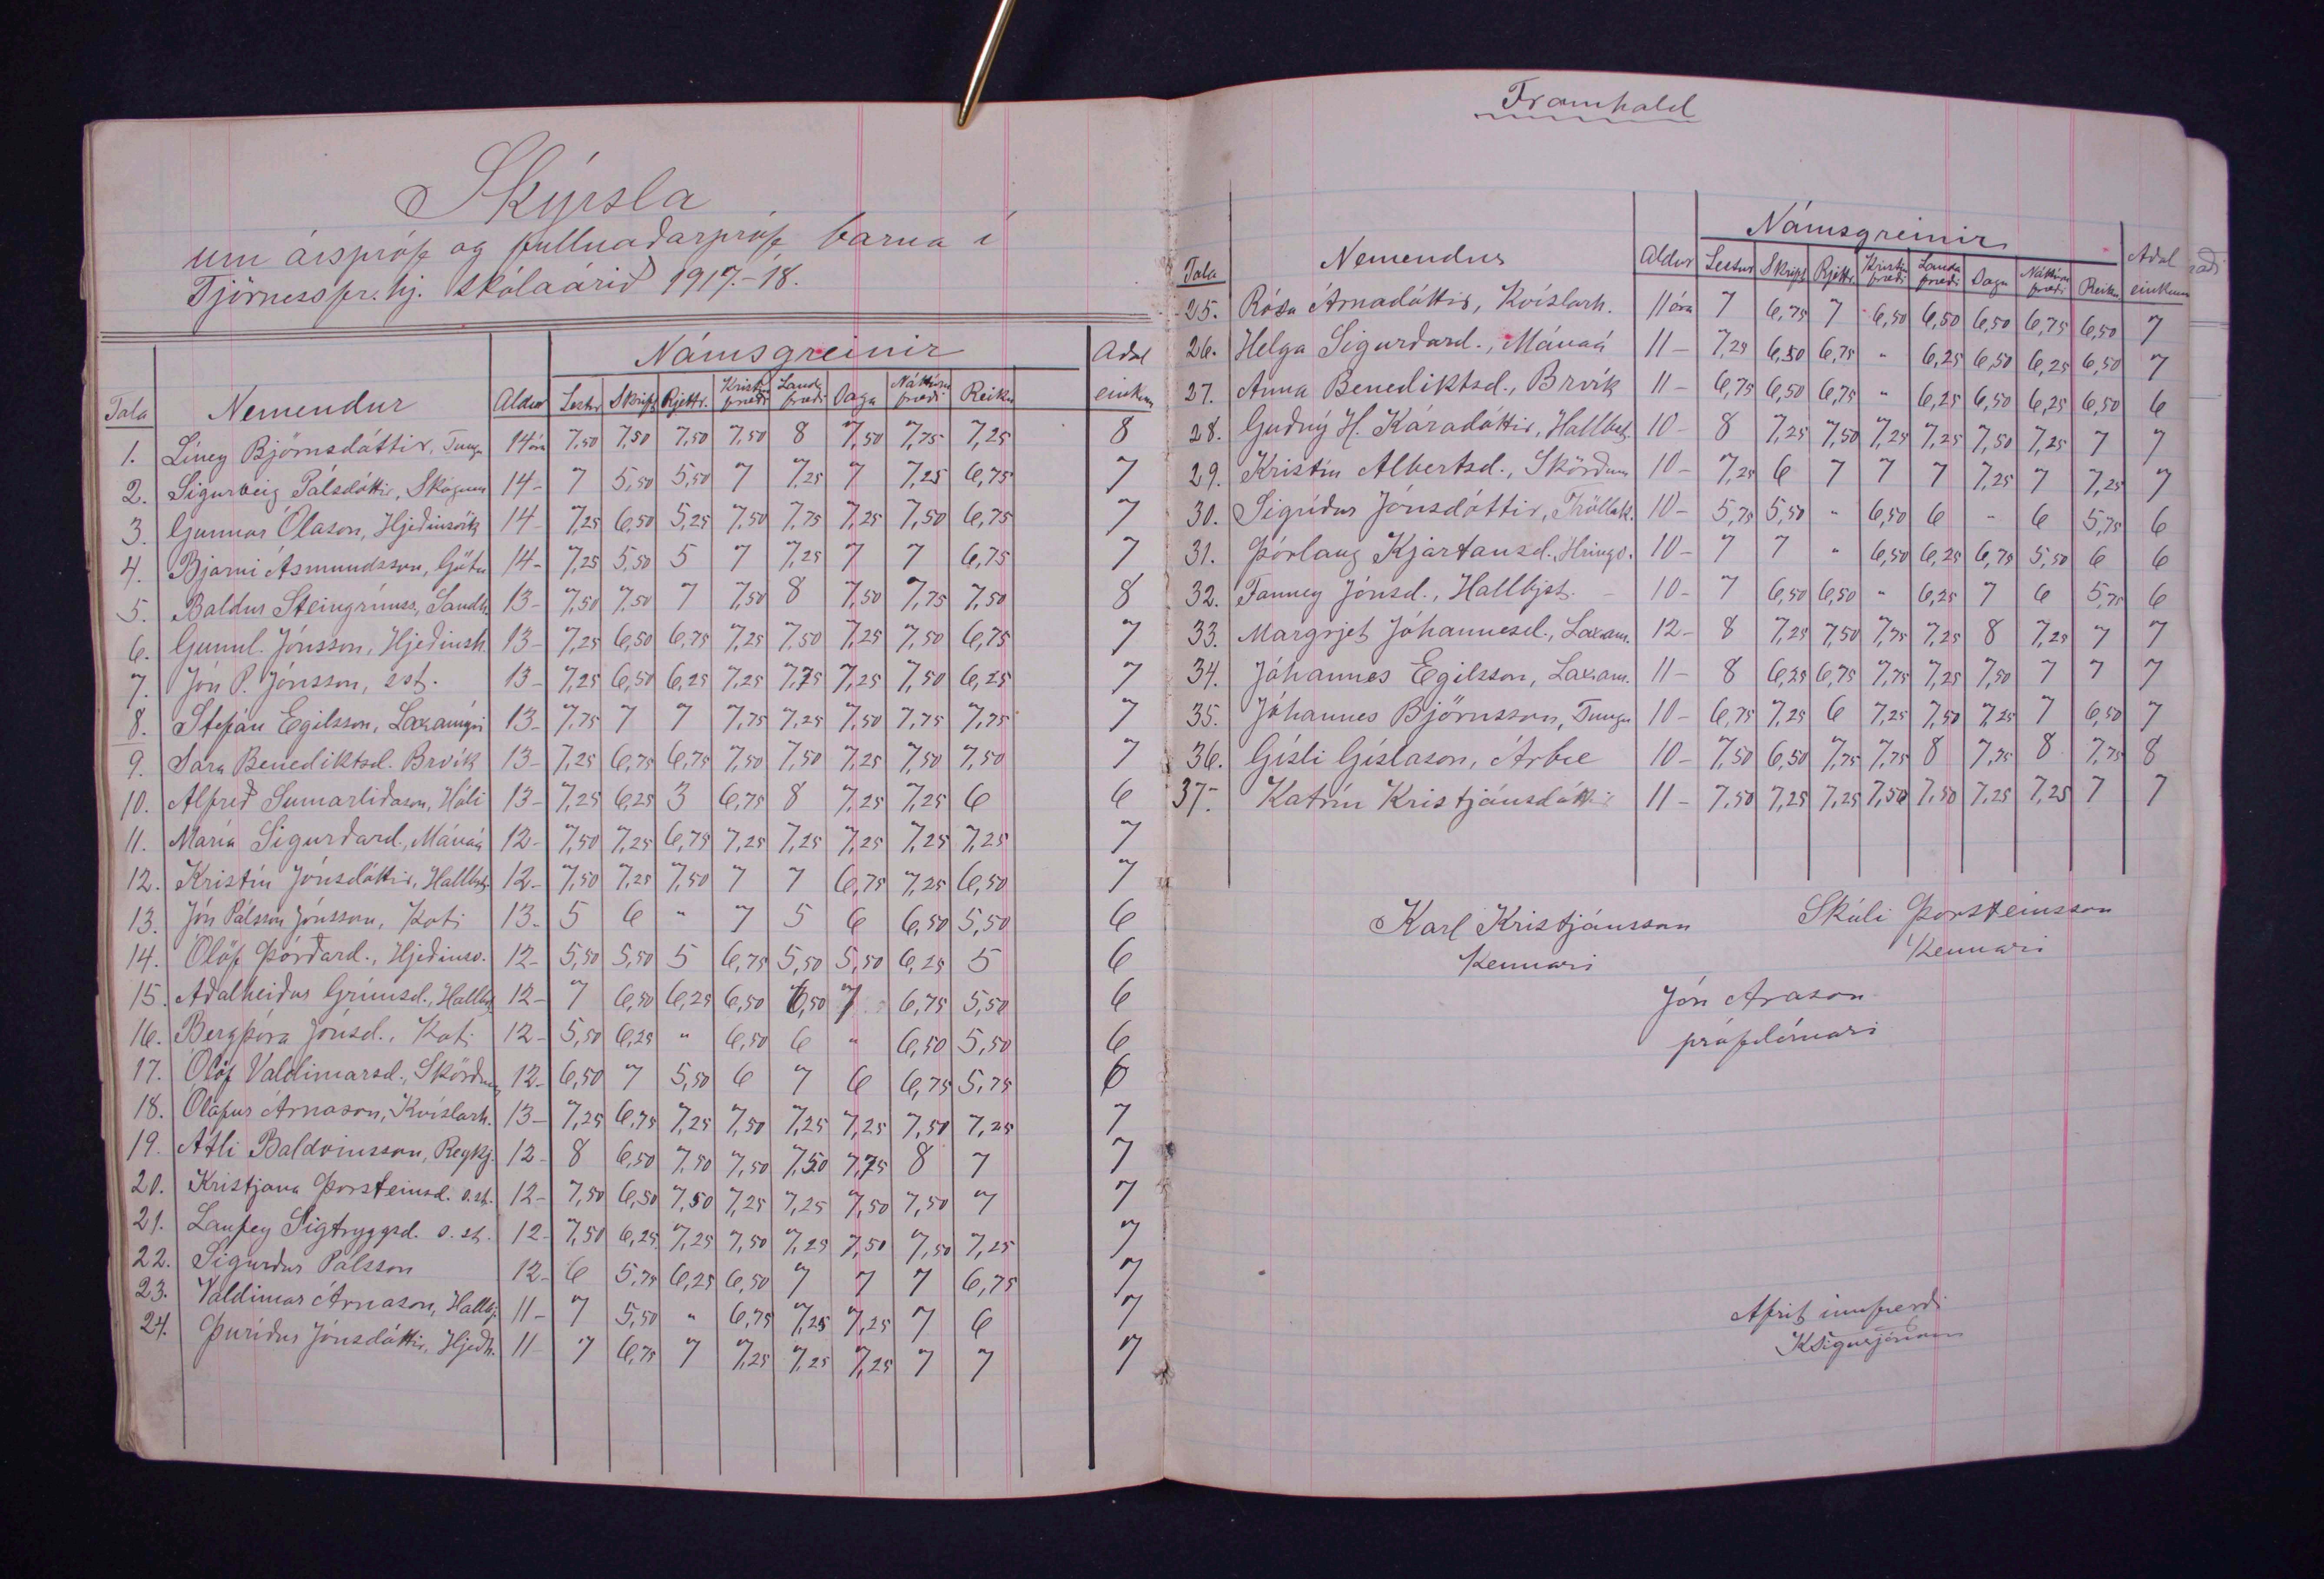 Skýrsla
um árspróf og fullnaðarpróf barna í
Tjörnessfr.hj. skólaárið 1917.-'18.
Námsgreinir Aðal
Tala Nemendur Aldur Lestur Skrift Rjettr. Kristinfræði Landafræði Saga Náttúrufræði Reikn einkunn
1. Líney Björnsdóttir, Tungu 14 ára 7,50 7,50 7,50 7,50 8 7,50 7,75 7,25 8
2. Sigurveig Pálsdóttir, Skógum 14- 7 5,50 5,50 7 7,25 7 7,25 6,75 7
3. Gunnar Ólason, Hjeðinsvík 14- 7,25 6,50 5,25 7,50 7,75 7,25 7,50 6,75 7
4. Bjarni Ásmundsson, Götu 14- 7,25 5,50 5 7 7,25 7 7 6,75 7
5. Baldur Steingrímss, Sandh. 13- 7,50 7,50 7 7,50 8 7,50 7,75 7,50 8
6. Gunnl. Jónsson, Hjeðinsh. 13- 7,25 6,50 6,75 7,25 7,50 7,25 7,50 6,75 7
7. Jón P. Jónsson, s.st. 13- 7,25 6,50 6,25 7,25 7,75 7,25 7,50 6,25 7
8. Stefán Egilsson, Laxamýri 13- 7,75 7 7 7,75 7,25 7,50 7,75 7,75 7
9. Sara Benediktsd. Brvík 13- 7,25 6,75 6,75 7,50 7,50 7,25 7,50 7,50 7
10. Alfreð Sumarliðason, Hóli 13- 7,25 6,25 3 6,75 8 7,25 7,25 6 6
11. María Sigurðard., Mánaá 12- 7,50 7,25 6,75 7,25 7,25 7,25 7,25 7,25 7
12. Kristín Jónsdóttir, Hallbst. 12- 7,50 7,25 7,50 7 7 6,75 7,25 6,50 7
13. Jón Pálsson Jónsson, Koti 13- 5 6 " 7 5 6 6,50 5,50 6
14. Ólöf Þórðard., Hjeðinsv. 12- 5,50 5,50 5 6,75 5,50 5,50 6,25 5 6
15. Aðalheiður Grímsd., Hallbst 12- 7 6,50 6,25 6,50 6,50 7 6,75 5,50 6
16. Bergþóra Jónsd., Koti 12- 5,50 6,25 " 6,50 6 " 6,50 5,50 6
17. Ólöf Valdimarsd., Skörðum 12- 6,50 7 5,50 6 7 6 6,75 5,75 6
18. Ólafur Árnason, Kvíslarh. 13- 7,25 6,75 7,25 7,50 7,25 7,25 7,50 7,25 7
19. Atli Baldvinsson, Reykj. 12- 8 6,50 7,50 7,50 7,50 7,75 8 7 7
20. Kristjana Þorsteinsd. s.st. 12- 7,50 6,50 7,50 7,25 7,25 7,50 7,50 7 7
21. Laufey Sigtryggsd. s.st. 12- 7,50 6,25 7,25 7,50 7,25 7,50 7,50 7,25 7
22. Sigurður Pálsson 12- 6 5,75 6,25 6,50 7 7 7 6,75 7
23. Valdimar Árnason, Hallbj. 11- 7 5,50 " 6,75 7,25 7,25 7 6 7
24. Þuríður Jónsdóttir, Hjeðh. 11- 7 6,75 7 7,25 7,25 7,25 7 7 7
Framhald
Námsgreinir Aðal
Tala Nemendur Aldur Lestur Skrift Rjettr. Kristinfræði Landafræði Saga Náttúrufræði Reikn. einkunn
25. Rósa Árnadóttir, Kvíslarh. 11 ára 7 6,75 7 6,50 6,50 6,50 6,75 6,50 7
26. Helga Sigurðard., Mánaá 11- 7,25 6,50 6,75 " 6,25 6,50 6,25 6,50 7
27. Anna Benediktsd., Brvík 11- 6,75 6,50 6,75 " 6,25 6,50 6,25 6,50 6
28. Guðný H. Káradóttir, Hallbst. 10- 8 7,25 7,50 7,25 7,25 7,50 7,25 7 7
29. Kristín Albertsd., Skörðum 10- 7,25 6 7 7 7 7,25 7 7,25 7
30. Sigríður Jónsdóttir, Tröllak. 10- 5,75 5,50 " 6,50 6 " 6 5,75 6
31. Þórlaug Kjartansd., Hringv. 10- 7 7 " 6,50 6,25 6,75 5,50 6 6
32. Fanney Jónsd., Hallbjst. 10- 7 6,50 6,50 " 6,25 7 6 5,75 6
33. Margrjet Jóhannesd., Laxam. 12- 8 7,25 7,50 7,75 7,25 8 7,25 7 7
34. Jóhannes Egilsson, Laxam. 11- 8 6,25 6,75 7,75 7,25 7,50 7 7 7
35. Jóhannes Björnsson, Tungu 10- 6,75 7,25 6 7,25 7,50 7,25 7 6,50 7
36. Gísli Gíslason, Árbæ 10- 7,50 6,50 7,75 7,75 8 7,75 8 7,75 8
37. Katrín Kristjánsdóttir 11- 7,50 7,25 7,25 7,50 7,50 7,25 7,25 7 7
Karl Kristjánsson Skúli Þorsteinsson
Kennari Kennari
Jón Arason
prófdómari
Afrit innfærði
KSigurjónsson